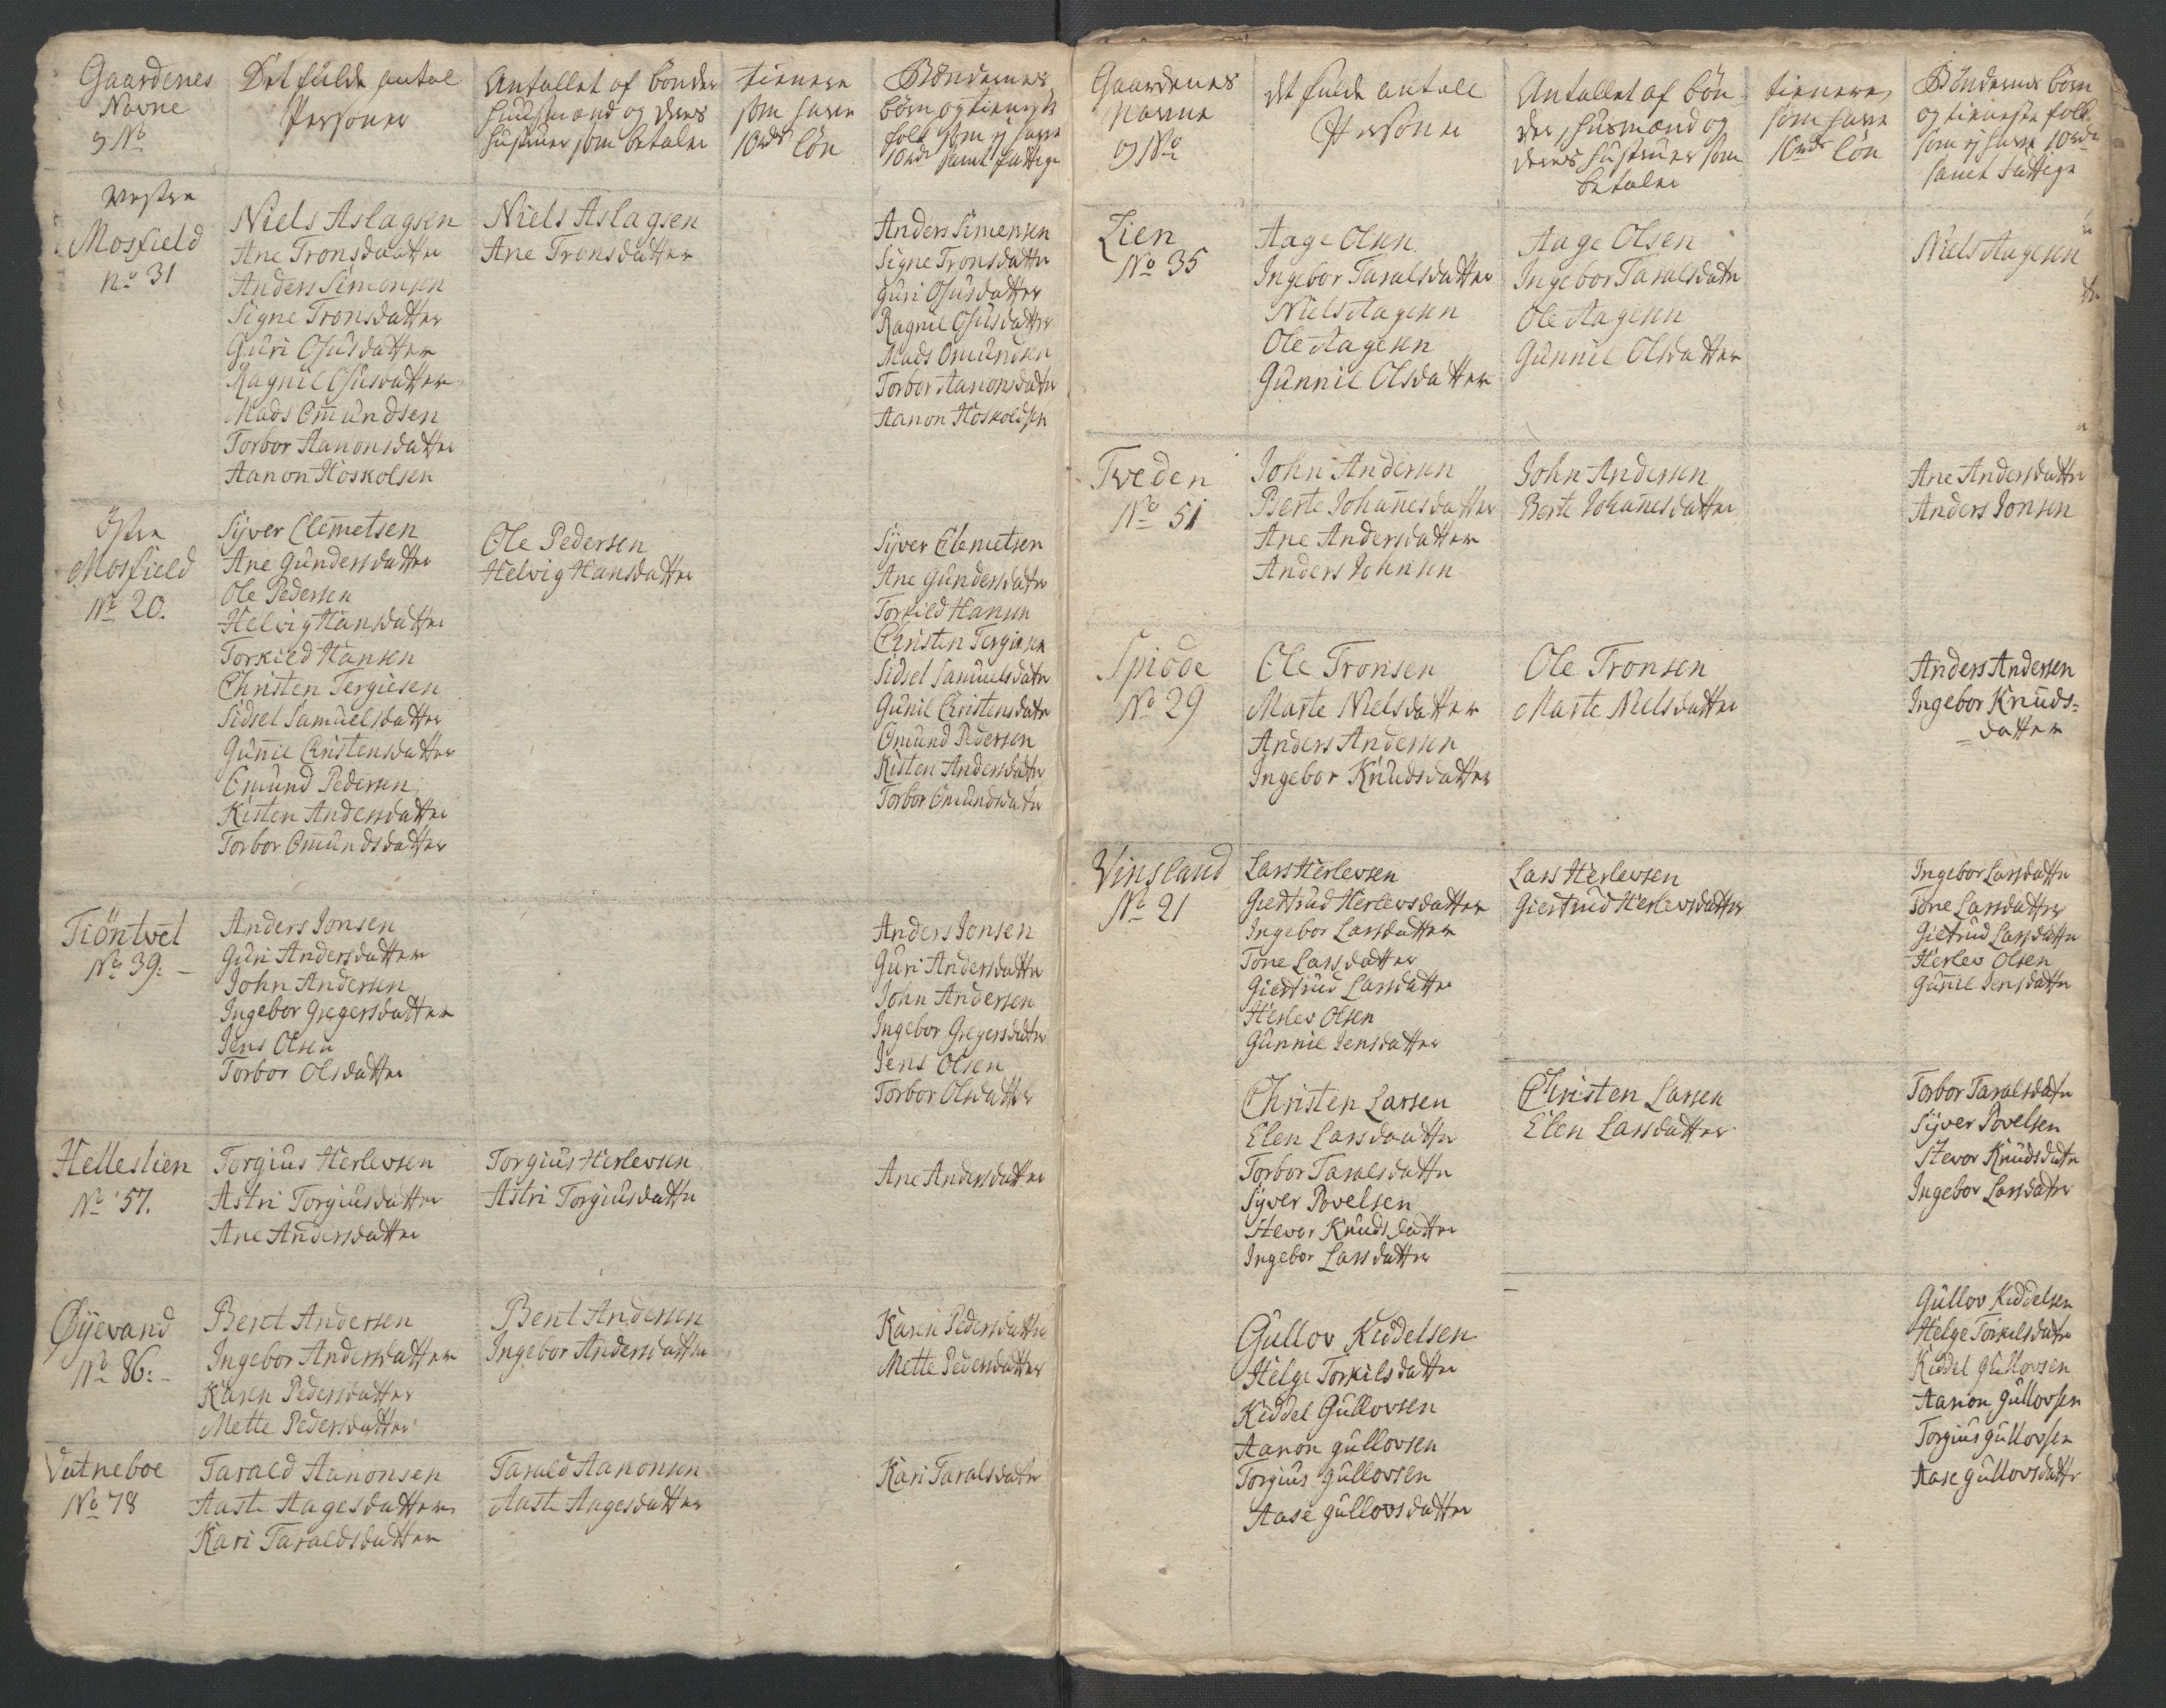 Gaardenes
Navne
og No
Det fulde antal
Personer
Antallet af bönder
huusmænd og deres
hustruer som betaler
tienere
som have
10rdr lön
Böndernes
börn og tieneste
folk som ej have
10rdr samt fattige
Westre
Mosfield
no 31
Niels Aslagsen
Ane Tronsdaatter
Anders Simonsen
Signe Tronsdatter
Guri Osusdatter
Ragnil Osusdatter
Mads Omundsen
Torbor Aanonsdatter
Aanon Hoskolsen
Niels Aslagsen
Ane Tronsdatter
Anders Simensen
Signe Tronsdatter
Guri Osusdatter
Ragnil Osusdatter
Mads Omundsen
Torbor Aanonsdatr
Aanon Hoskoldsen
Östre
Mosfield
No 20.
Syver Clemetsen
Ane Gundersdatter
Ole Pedersen
Helvig Hansdatter
Torkild Hansen
Christen Tergiesen
Sidsel Samuelsdatter
Gunnil Christensdatter
Omund Pedersen
Kisten Andersdatter
Torbor Omundsdatter
Ole Pedersen
Helvig Hansdatter
Syver Clemetsen
Ane Gundersdatr
Torkild Hansen
Christen Tergiesen
Sidsel Samuelsdatr
Gunil Christensdatr
Omund Pedersen
Kisten Andersdatter
Torbor Omundsdatr
Tiöntvet
No 39. –
Anders Jonsen
Guri Andersdatter
John Andersen
Ingebor Gregersdatter
Jens Olsen
Torbor Olsdatter
Anders Jonsen
Guri Andersdatter
John Andersen
Ingebor Gregersdatr
Jens Olsen
Torbor Olsdatter
Helleslien
No 57.
Torgius Herlevsen
Astri Torgiusdatter
Ane Andersdatter
Torgius Herlevsen
Astri Torgiusdatter
Ane Andersdatter
Øyevand
No 86: –
Bent Andersen
Ingebor Andersdatter
Karen Pedersdatter
Mette Pedersdatter
Bent Andersen
Ingebor Andersdatter
Karen Pedersdatter
Mette Pedersdatter
Vatneboe
No 78
Tarald Aanonsen
Aaste Aagesdatter
Kari Taraldsdatter
Tarald Aanonsen
Aaste Aagesdatter
Kari Taralsdatr
Gaardenes
Navne
og No
Det fulde antall
Personer
Antallet af bön
der, husmænd og
deres hustruer som
betaler
tienere,
som have
10rdr lön
Böndernes börn
og tieneste folk
som ej have 10rdr
samt fattige
Lien
No 35
Aage Olsen
Ingebor Taralsdatter
Niels Aagesen
Ole Aagesen
Gunnil Olsdatter
Aage Olsen
Ingebor Taralsdatr
Ole Aagesen
Gunnil Olsdatter
Niels Aagesen
Tveden
No 51
John Andersen
Berte Johannesdatter
Ane Andersdatter
Anders Johnsen
John Andersen
Berte Johannesdatter
Ane Andersdatter
Anders Jonsen
Spiöde
No 29
Ole Tronsen
Marte Nielsdatter
Anders Andersen
Ingebor Knudsdatter
Ole Tronsen
Marte Nielsdatter
Anders Andersen
Ingebor Knuds=
datter
Vinsland
No 21
Lars Herlevsen
Giertrud Herlevsdatter
Ingebor Larsdatter
Tone Larsdatter
Giertrud Larsdatter
Herlev Olsen
Gunnil Jensdatter
Lars Herlevsen
Giertrud Herlevsdatter
Ingebor Larsdatter
Tone Larsdatter
Giertrud Larsdatter
Herlev Olsen
Gunnil Jensdatter
Christen Larsen
Elen Larsdaatter
Torbor Taralsdatter
Syver Povelsen
Stevor Knudsdatter
Ingebor Larsdatter
Christen Larsen
Elen Larsdatter
Torbor Taralsdatr
Syver Povelsen
Stevor Knudsdatr
Ingebor Larsdatr
Gullov Kiddelsen
Helge Torkilsdatter
Kiddel Gullovsen
Aanon Gullovsen
Torgius Gullovsen
Aase Gullovsdatter
Gullov Kiddelsen
Helge Torkilsdatr
Kiddel Gullovsen
Aanon Gullovsen
Torgius Gullovsen
Aase Gullovsdattr